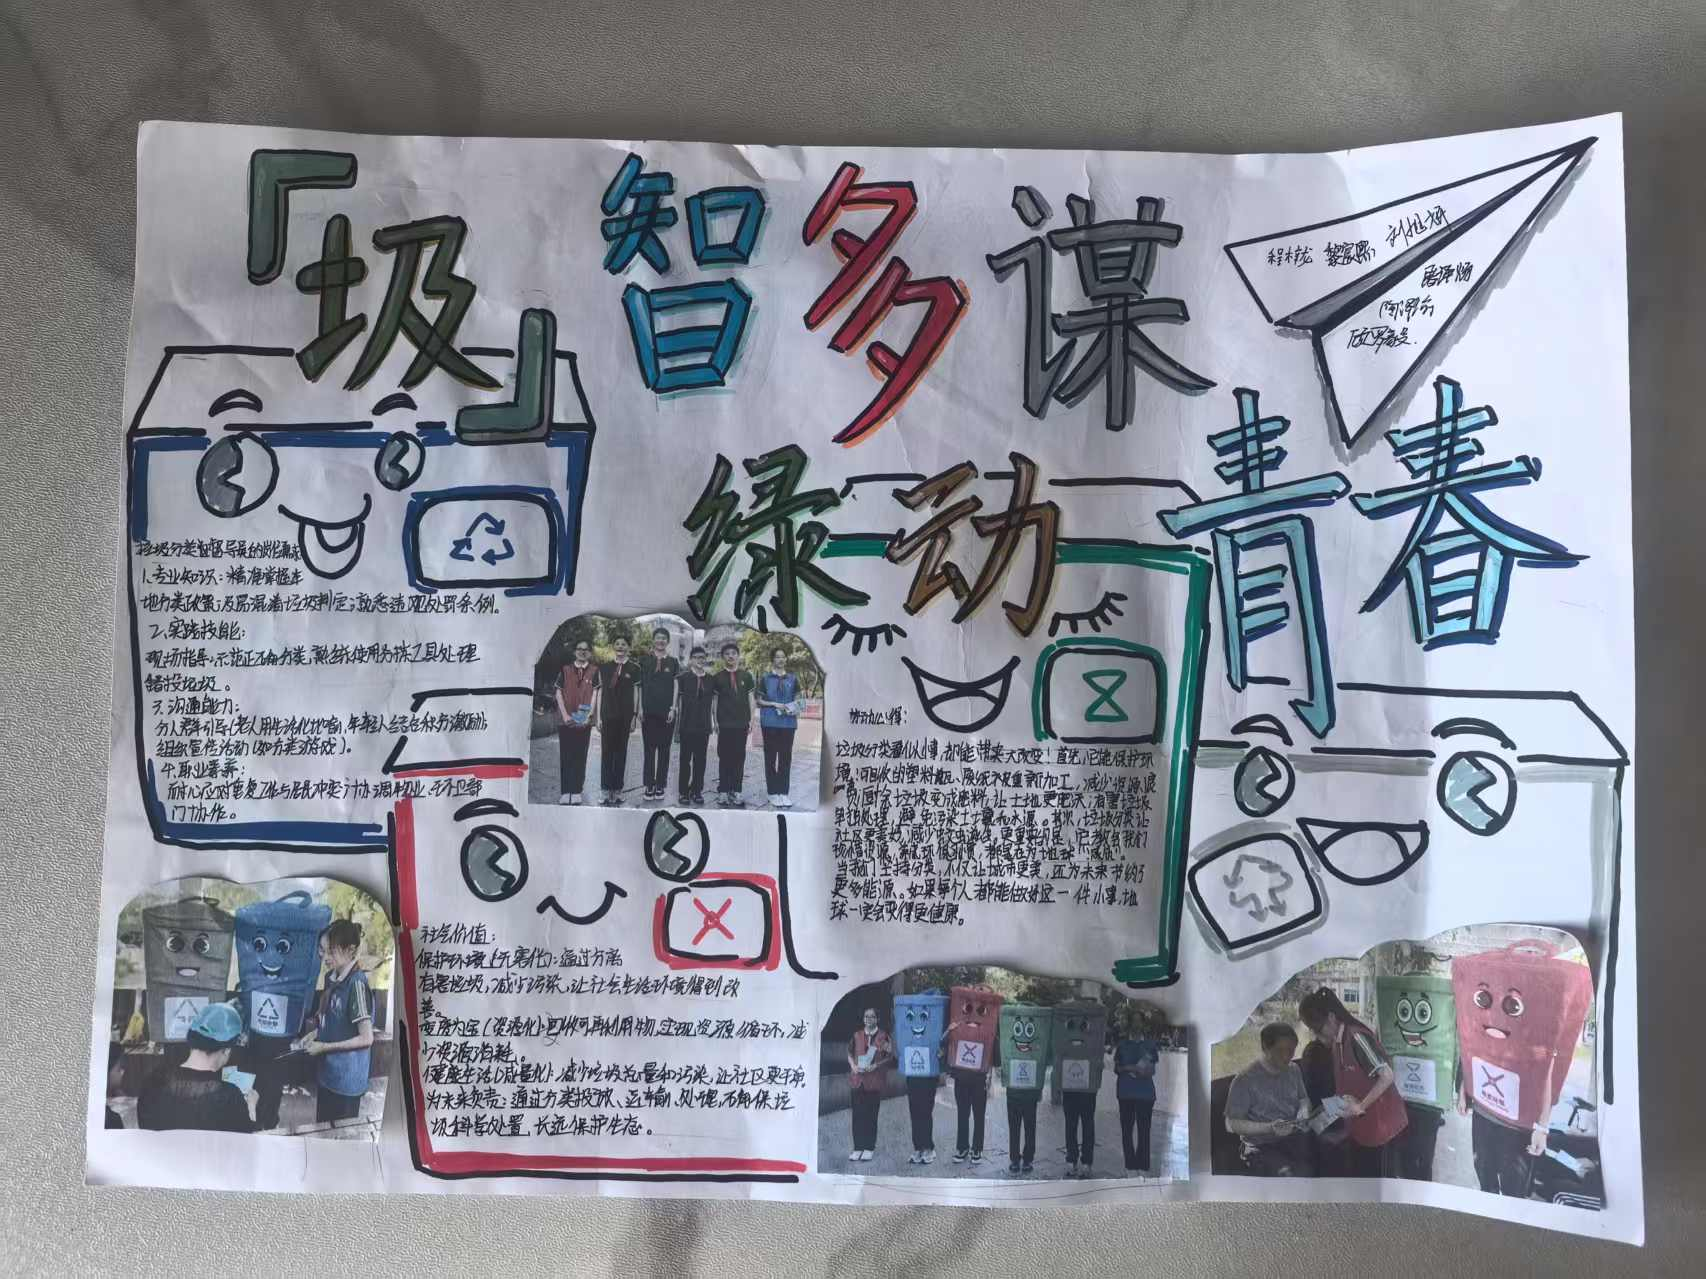 「圾」智多谋
绿动青春
垃圾分类督导员的岗位需求
1.专业知识:精准掌握本
地分类政策及易混淆垃圾判定;熟悉违规处罚条例。
2.实践技能:
现场指导,示范正确分类,熟练使用分拣工具处理
错投垃圾。
3.沟通能力:
分人群引导(老人用生活化比喻,年轻人结合积分激励);
组织宣传活动(如分类游戏)。
4.职业素养:
耐心应对重复工作与居民冲突
门协作。
社会价值:
保护环境(无害化):通过分离
有害垃圾,减少污染,让社会生活环境得到改
善。
变废为宝(资源化):回收可再利用物,实现资源循环,减
少资源消耗。
健康生活(减量化):减少垃圾总量和污染,让社区更干净。
为未来负责:通过分类投放、运输、处理,确保垃
圾科学处置,长远保护生态。
劳动心得:
垃圾分类看似小事,却能带来大改变!首先,它能保护环
境:可回收的塑料瓶、废纸
重新加工,减少资源浪
费;厨余垃圾变成肥料,让土地更肥沃;有害垃圾
单独处理,避免污染土壤和水源。其次,垃圾分类让
社区更美好,减少蚊虫滋生。更重要的是,它教会我们
珍惜资源
当我们坚持分类,不仅让城市更美,还为未来节约了
更多能源。如果每个人都能做好这一件小事,地
球一定会变得更健康。